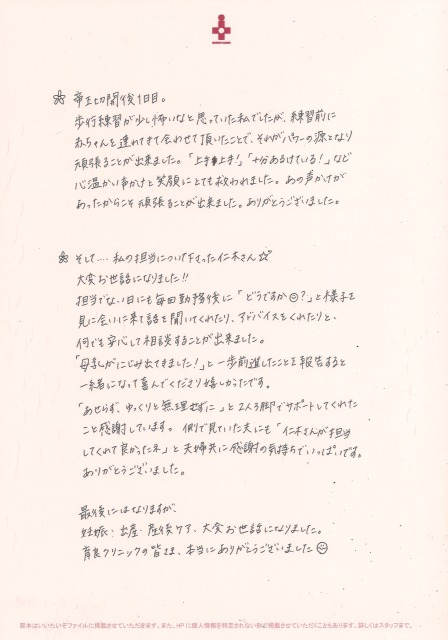 ☆ 帝王切開後1日目。
歩行練習が少し怖いなと思っていた私でしたが、練習前に
赤ちゃんを連れてきて会わせて頂いたことで、それがパワーの源となり
頑張ることが出来ました。「上手上手!」「十分あるけている!」など
心温かい声かけと笑顔にとても救われました。あの声かけが
あったからこそ頑張ることが出来ました。ありがとうございました。
☆ そして‥‥私の担当について下さった仁木さん☆
大変お世話になりました!!
担当でない日にも毎回勤務後に「どうですか☺?」と様子を
見に会いに来て話を聞いてくれたり、アドバイスをくれたりと、
何でも安心して相談することが出来ました。
「母乳がにじみ出てきました!」と一歩前進したことを報告すると
一緒になって喜んでくださり嬉しかったです。
「あせらず、ゆっくりと無理せずに」と2人3脚でサポートしてくれた
こと感謝しています。側で見ていた夫にも「仁木さんが担当
してくれて良かったネ」と夫婦共に感謝の気持ちでいっぱいです。
ありがとうございました。
最後にはなりますが、
妊娠・出産・産後ケア、大変お世話になりました。
育良クリニックの皆さま、本当にありがとうございました☺
原本はいいたいそファイルに掲載させていただきます。また、HPに個人情報を特定されない形で掲載させていただくこともあります。詳しくはスタッフまで。